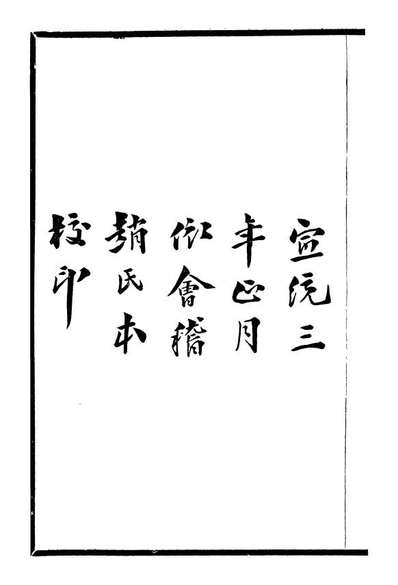 宣統三
年正月
依會稽
趙氏本
校印